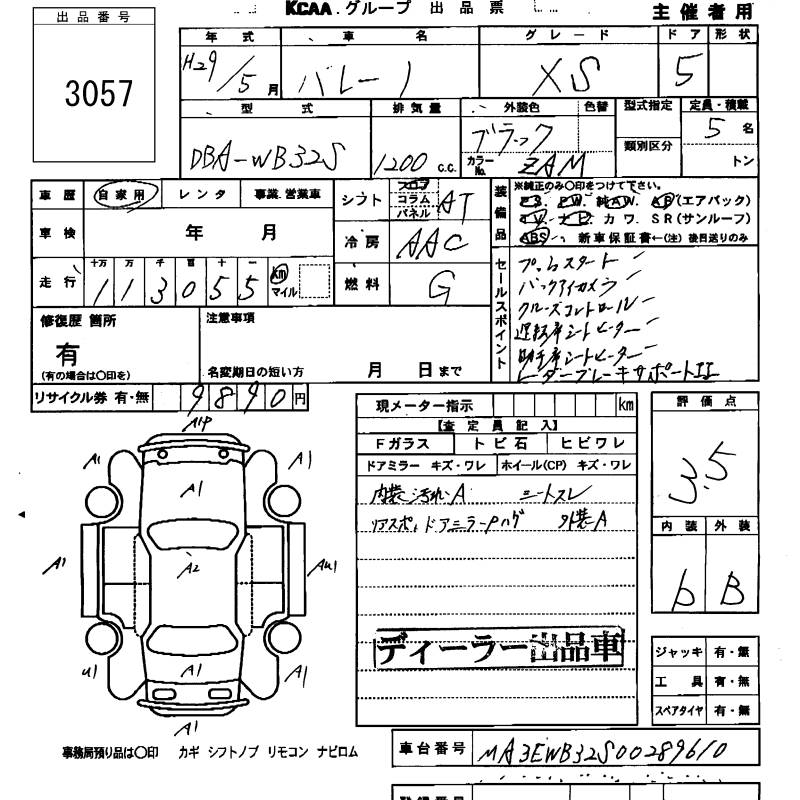 出品番号
3057
KCAA グループ 出品票
主催者用
年式 車名 グレード ドア 形状
H29/5月 バレーノ XS 5
型式 排気量 外装色 色替 型式指定 定員・積載
類別区分
DBA-WB32S 1200 c.c. ブラック カラーNo. ZAM 5名
トン
車歴 自家用 レンタ 事業 営業車
車検 年 月
走行 十万 万 千 百 十 一
113055 km マイル
シフト フロア コラム パネル AT
冷房 AAC
燃料 G
装備品 ※純正のみ○印をつけて下さい。
P.S. P.W. 純AW. AB(エアバック)
TV. ナビ. カワ. SR(サンルーフ)
ABS 新車保証書←(注) 後日送りのみ
セールスポイント
プッシュスタート
バックアイカメラ
クルーズコントロール
運転席シートヒーター
助手席シートヒーター
レーダーブレーキサポートII
修復歴 箇所
有
(有の場合は○印を)
注意事項
名変期日の短い方 月 日まで
リサイクル券 有・無 9890円
現メーター指示 km
【査定員記入】
Fガラス トビ石 ヒビワレ
ドアミラー キズ・ワレ ホイール(CP) キズ・ワレ
内装汚れA シートスレ
リアスポ,ドアミラーPハゲ 外装A
ディーラー出品車
評価点
3.5
内装 外装
b B
ジャッキ 有・無
工具 有・無
スペアタイヤ 有・無
A1P
A1 A1
A1
A1 A2 AU1
U1 A1 A1
A1
事務局預り品は○印 カギ シフトノブ リモコン ナビロム
車台番号 MA3EWB32S00289610